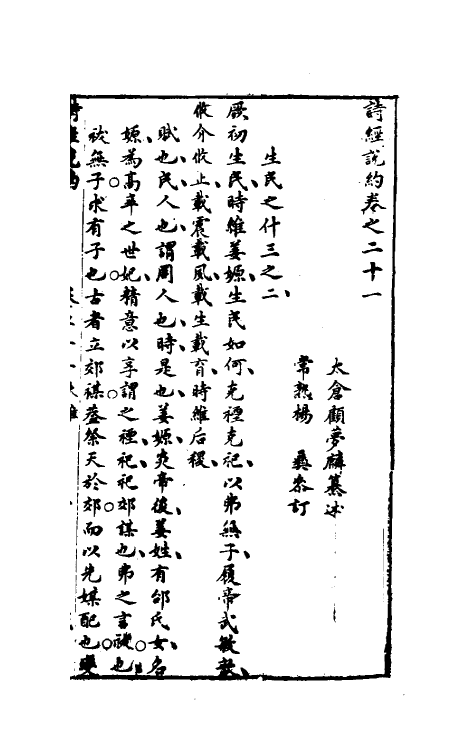 詩經說約卷之二十一
太倉顧夢麟纂述
常熟楊　彝叅訂
生民之什三之二
厥初生民時維姜嫄生民如何克禋克祀以弗無子履帝武敏歆
攸介攸止載震載夙載生載育時維后稷
賦也民人也謂周人也時是也姜嫄炎帝後姜姓有邰氏女名
嫄為高辛之世妃精意以享謂之禋祀祀郊禖也弗之言祓也
祓無子求有子也古者立郊禖葢祭天於郊而以先媒配也變